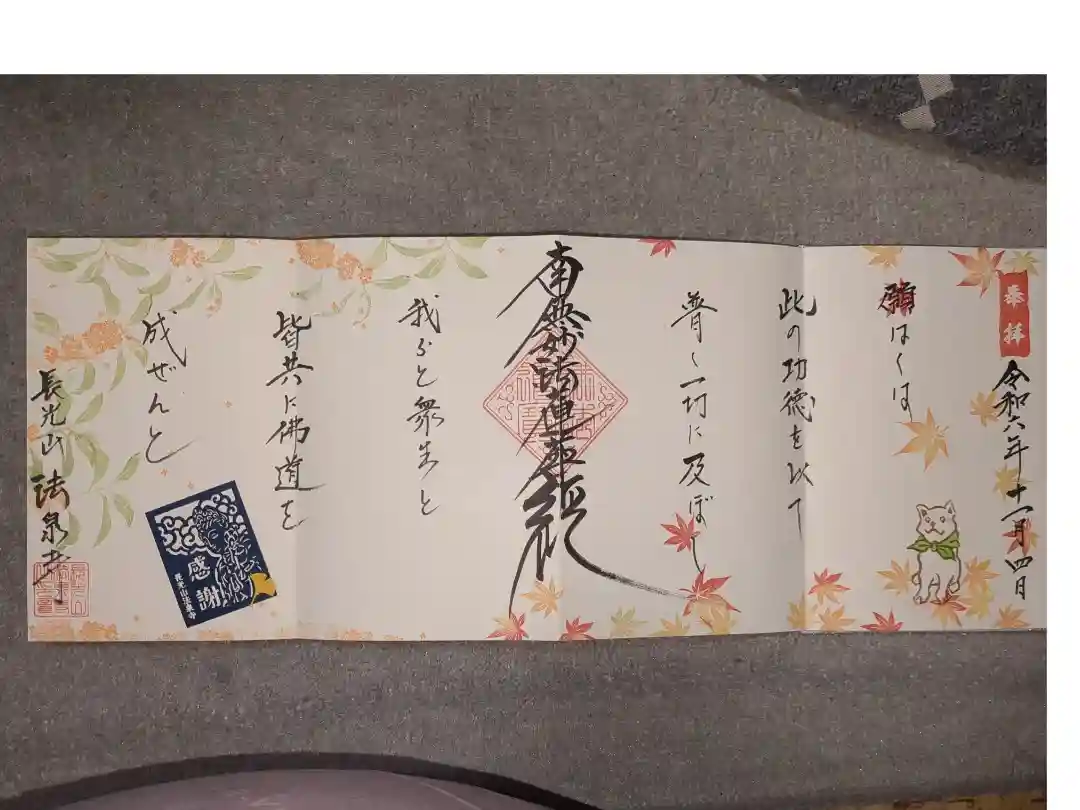 奉拝
令和六年十一月四日
願はくは
此の功徳を以て
普く一切に及ぼし
南無妙法蓮華経
我らと衆生と
皆共に佛道を
成ぜんと
感謝
長光山法泉寺
長光山 法泉寺